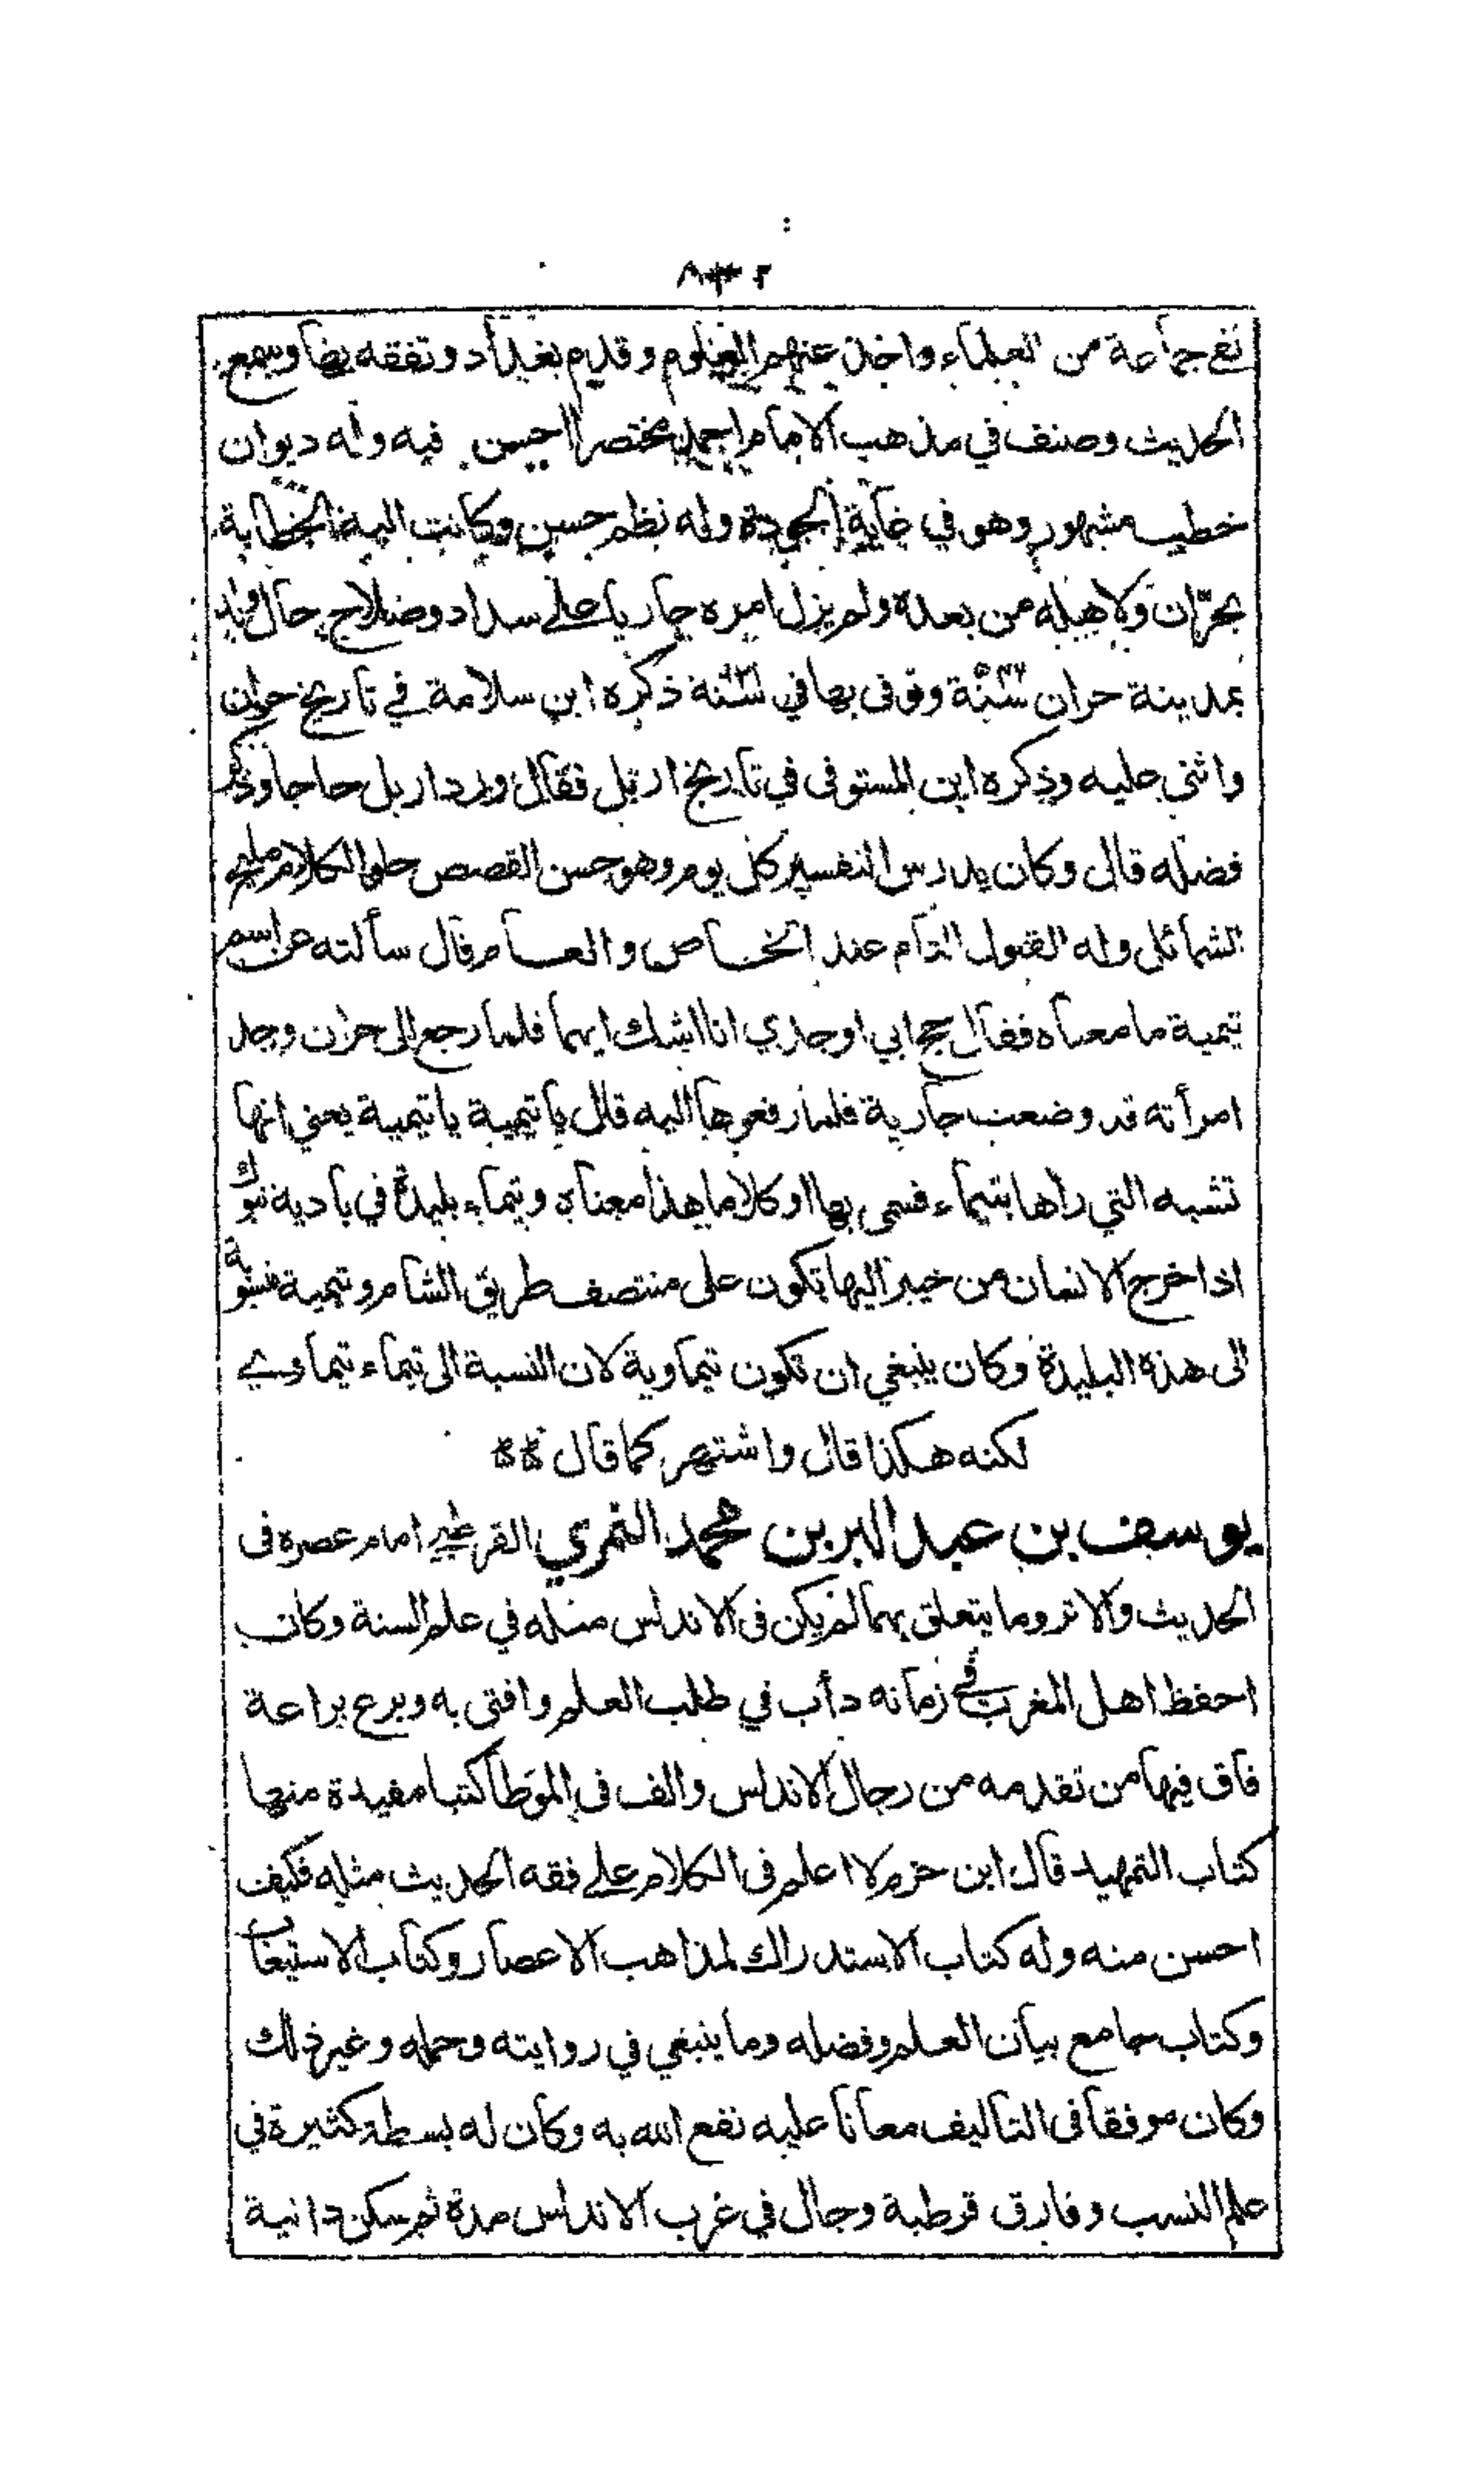 جماعة من العلماء واخذ عنهم العلوم وقدم بغداد وتفقه بها وسمع
الحديث وصنف في مذهب الامام احمد مختصرا احسن فيه وله ديوان
خطب مشهور وهو في غاية الجودة وله نظم حسن وكانت اليه الخطابة
بحرّان ولاهله من بعده ولم يزل امره جاريا على سداد وصلاح حال ولد
بمدينة حران سنة وتوفى بها في سنة ذكره ابن سلامة في تاريخ حران
واثنى عليه وذكره ابن المستوفى في تاريخ اربل فقال ورد اربل حاجا وذكر
فضله قال وكان يدرس التفسير كل يوم وهو حسن القصص حلو الكلام مليح
الشمائل وله القبول التام عند الخاص والعام قال سألته عن اسم
تيمية ما معناه فقال حج ابي او جدي انا اشك ايهما فلما رجع الى حران وجد
امرأته قد وضعت جارية فلما رفعوها اليه قال يا تيمية يا تيمية يعني انها
تشبه التي راها بتيماء فسمى بها او كلاما هذا معناه وتيماء بليدة في بادية تبوك
اذا خرج الانسان من خيبر اليها تكون على منتصف طريق الشام وتيمية منسوبة
الى هذه البليدة وكان ينبغي ان تكون تيماوية لان النسبة الى تيماء تيماوي
لكنه هكذا قال واشتهر كما قال
يوسف بن عبد البر بن محمد النمري القرطبي امام عصره فى
الحديث والاثر وما يتعلق بهما لم يكن فى الاندلس مثله في علم السنة وكان
احفظ اهل المغرب في زمانه دأب في طلب العلم وافتى به وبرع براعة
فاق فيها من تقدمه من رجال الاندلس والف فى الموَطا كتبا مفيدة منها
كتاب التمهيد قال ابن حزم لا اعلم فى الكلام على فقه الحديث مثله فكيف
احسن منه وله كتاب الاستدراك لمذاهب الاعصار وكتاب الاستيعاب
وكتاب جامع بيان العلم وفضله وما ينبغي في روايته وحمله وغير ذلك
وكان موفقا فى التاليف معانا عليه نفع الله به وكان له بسطة كثيرة في
علم النسب وفارق قرطبة وجال في غرب الاندلس مدة ثم سكن دانية